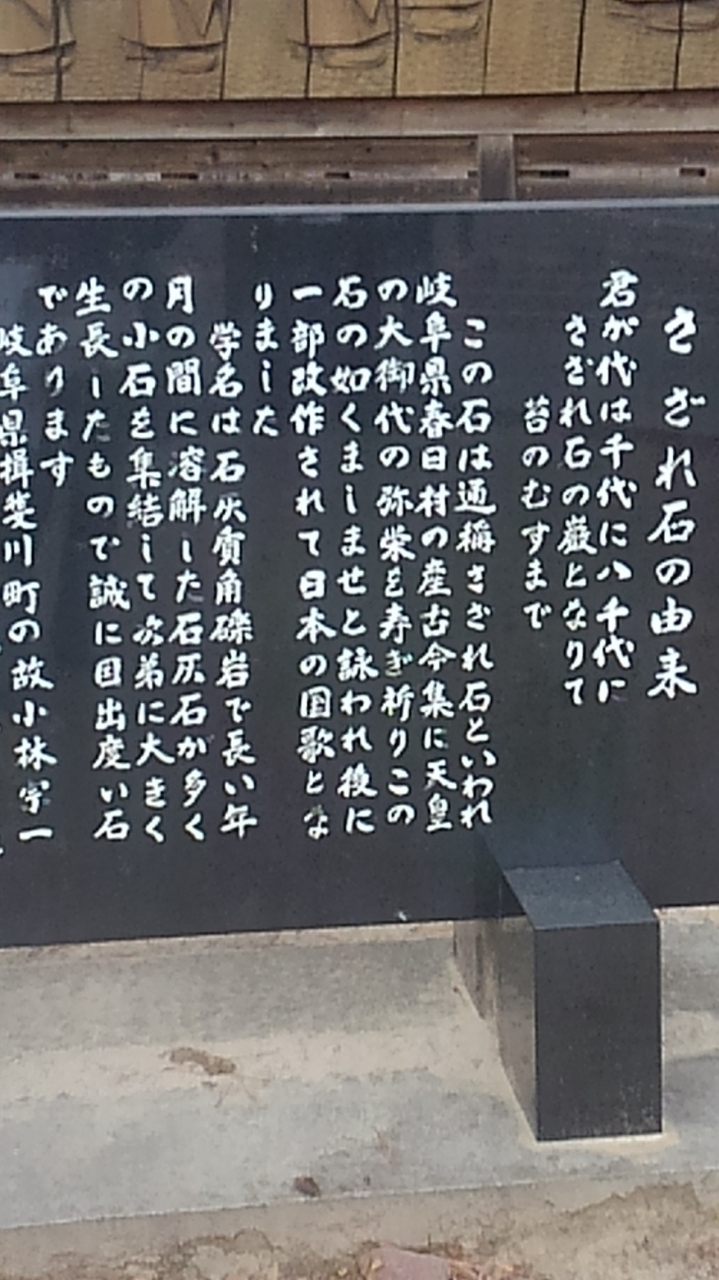 さざれ石の由来
君が代は千代に八千代に
さざれ石の巌となりて
苔のむすまで
この石は通稱さざれ石といわれ
岐阜県春日村の産古今集に天皇
の大御代の弥栄を寿ぎ祈りこの
石の如くましませと詠われ後に
一部改作されて日本の国歌とな
りました
学名は石灰質角礫岩で長い年
月の間に溶解した石灰石が多く
の小石を集結して次第に大きく
生長したもので誠に目出度い石
であります
岐阜県揖斐川町の故小林宗一